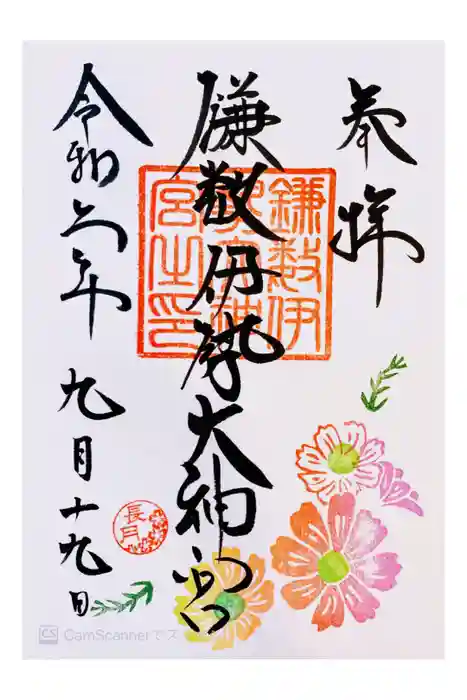 奉拝
鎌数伊勢大神宮
令和六年
九月十九日
鎌数伊
勢大神
宮之印
長月
CS CamScannerでス